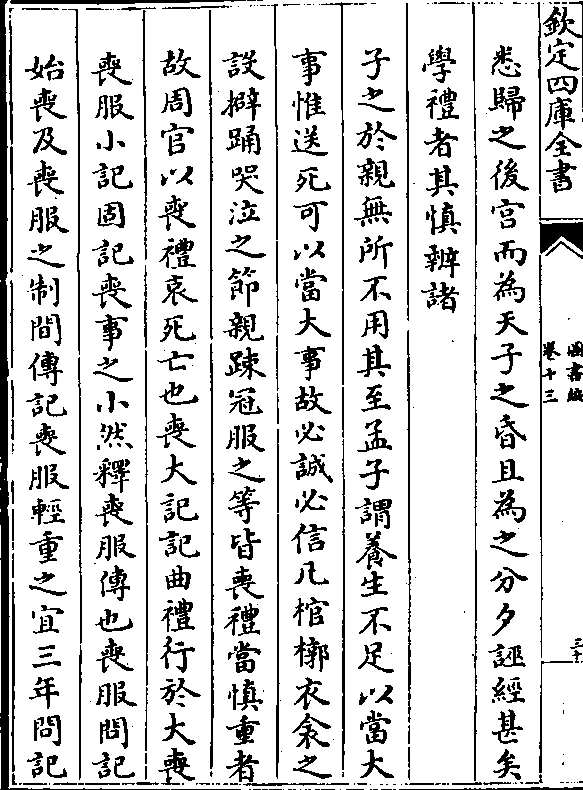 欽定四庫全書
圖書編
卷十三
三十
悉歸之後宫而為天子之昏且為之分夕誣經甚矣
學禮者其慎辨諸
子之於親無所不用其至孟子謂養生不足以當大
事惟送死可以當大事故必誠必信凡棺槨衣衾之
設擗踊哭泣之節親疎冠服之等皆喪禮當慎重者
故周官以喪禮哀死亡也喪大記記曲禮行於大喪
喪服小記固記喪事之小然釋喪服傳也喪服問記
始喪及喪服之制間傳記喪服輕重之宜三年問記